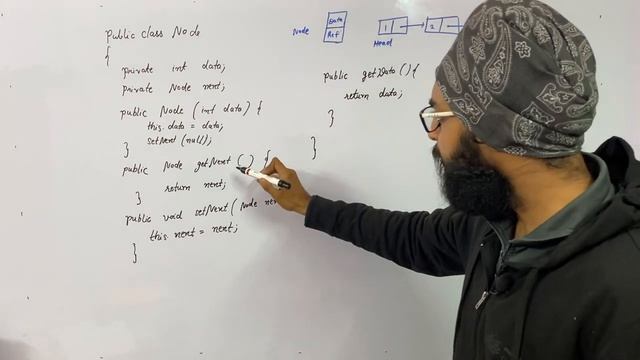 public class Node
{
private int data;
private Node next;
public Node (int data) {
this.data = data;
setNext (null);
}
public Node getNext () {
return next;
}
public void setNext (Node
this.next = next;
}
Node
Data
Ref
1
2
Head
public getData () {
return data;
}
}